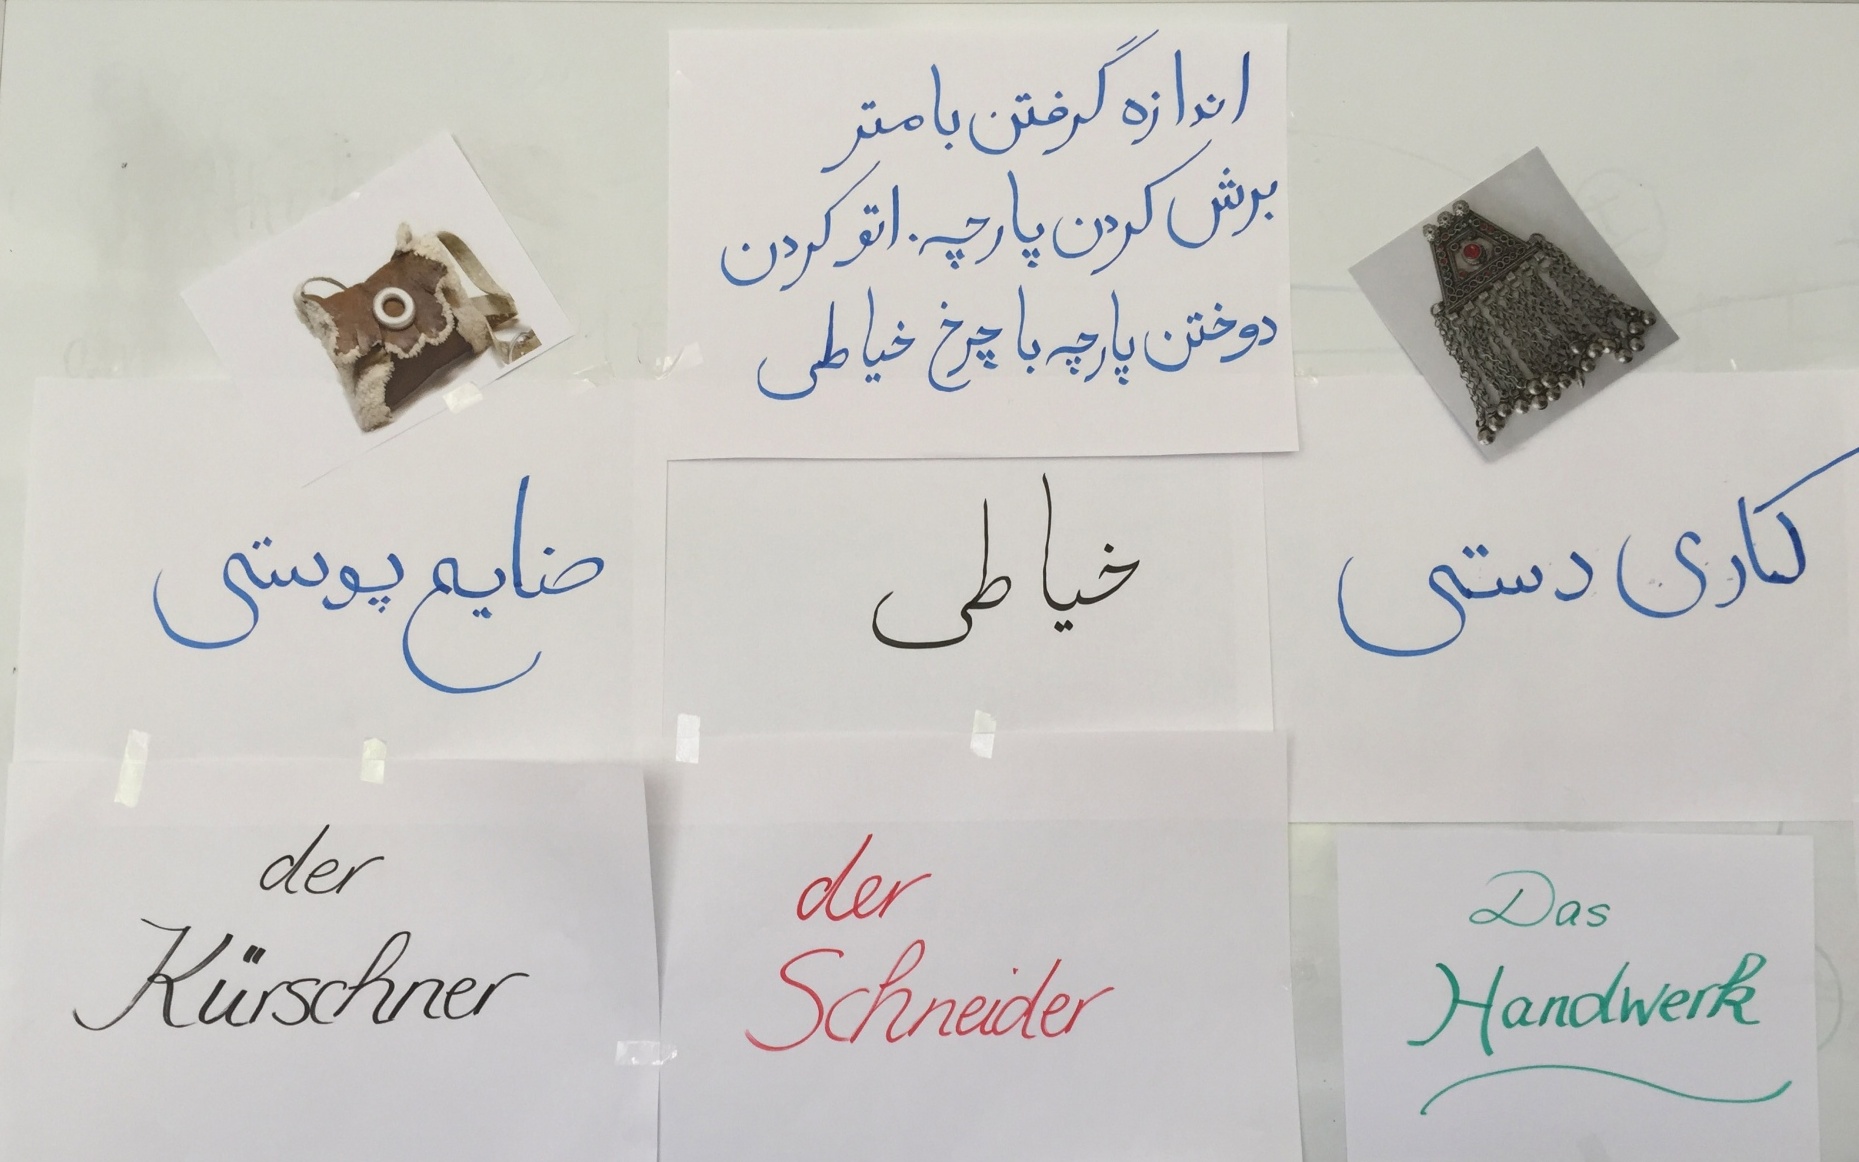 اندازه گرفتن با متر
برش کردن پارچه. اتو کردن
دوختن پارچه با چرخ خیاطی
ضایع پوستی
خیاطی
کاری دستی
der
Kürschner
der
Schneider
Das
Handwerk